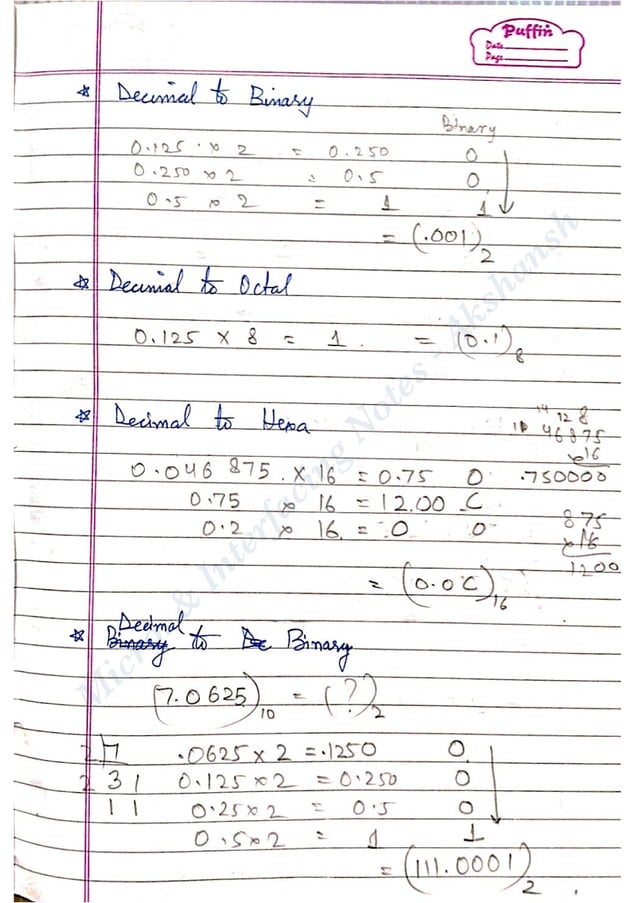 Puffin
Date
Page
☆ Decimal to Binary
Binary
0.125 × 2 = 0.250 0
0.250 × 2 = 0.5 0
0.5 × 2 = 1 1
= (.001)2
☆ Decimal to Octal
0.125 × 8 = 1. = (0.1)8
☆ Decimal to Hexa
0.046875 × 16 = 0.75 0
0.75 × 16 = 12.00 C
0.2 × 16 = 0 0
46875
×16
.750000
875
×16
1200
= (0.0C)16
Decimal
☆ Binary to De Binary
(7.0625)10 = (?)2
2 7 .0625 × 2 = .1250 0
2 3 1 0.125 × 2 = 0.250 0
1 1 0.25 × 2 = 0.5 0
0.5 × 2 = 1 1
= (111.0001)2
& Interfacing Notes - Akshansh